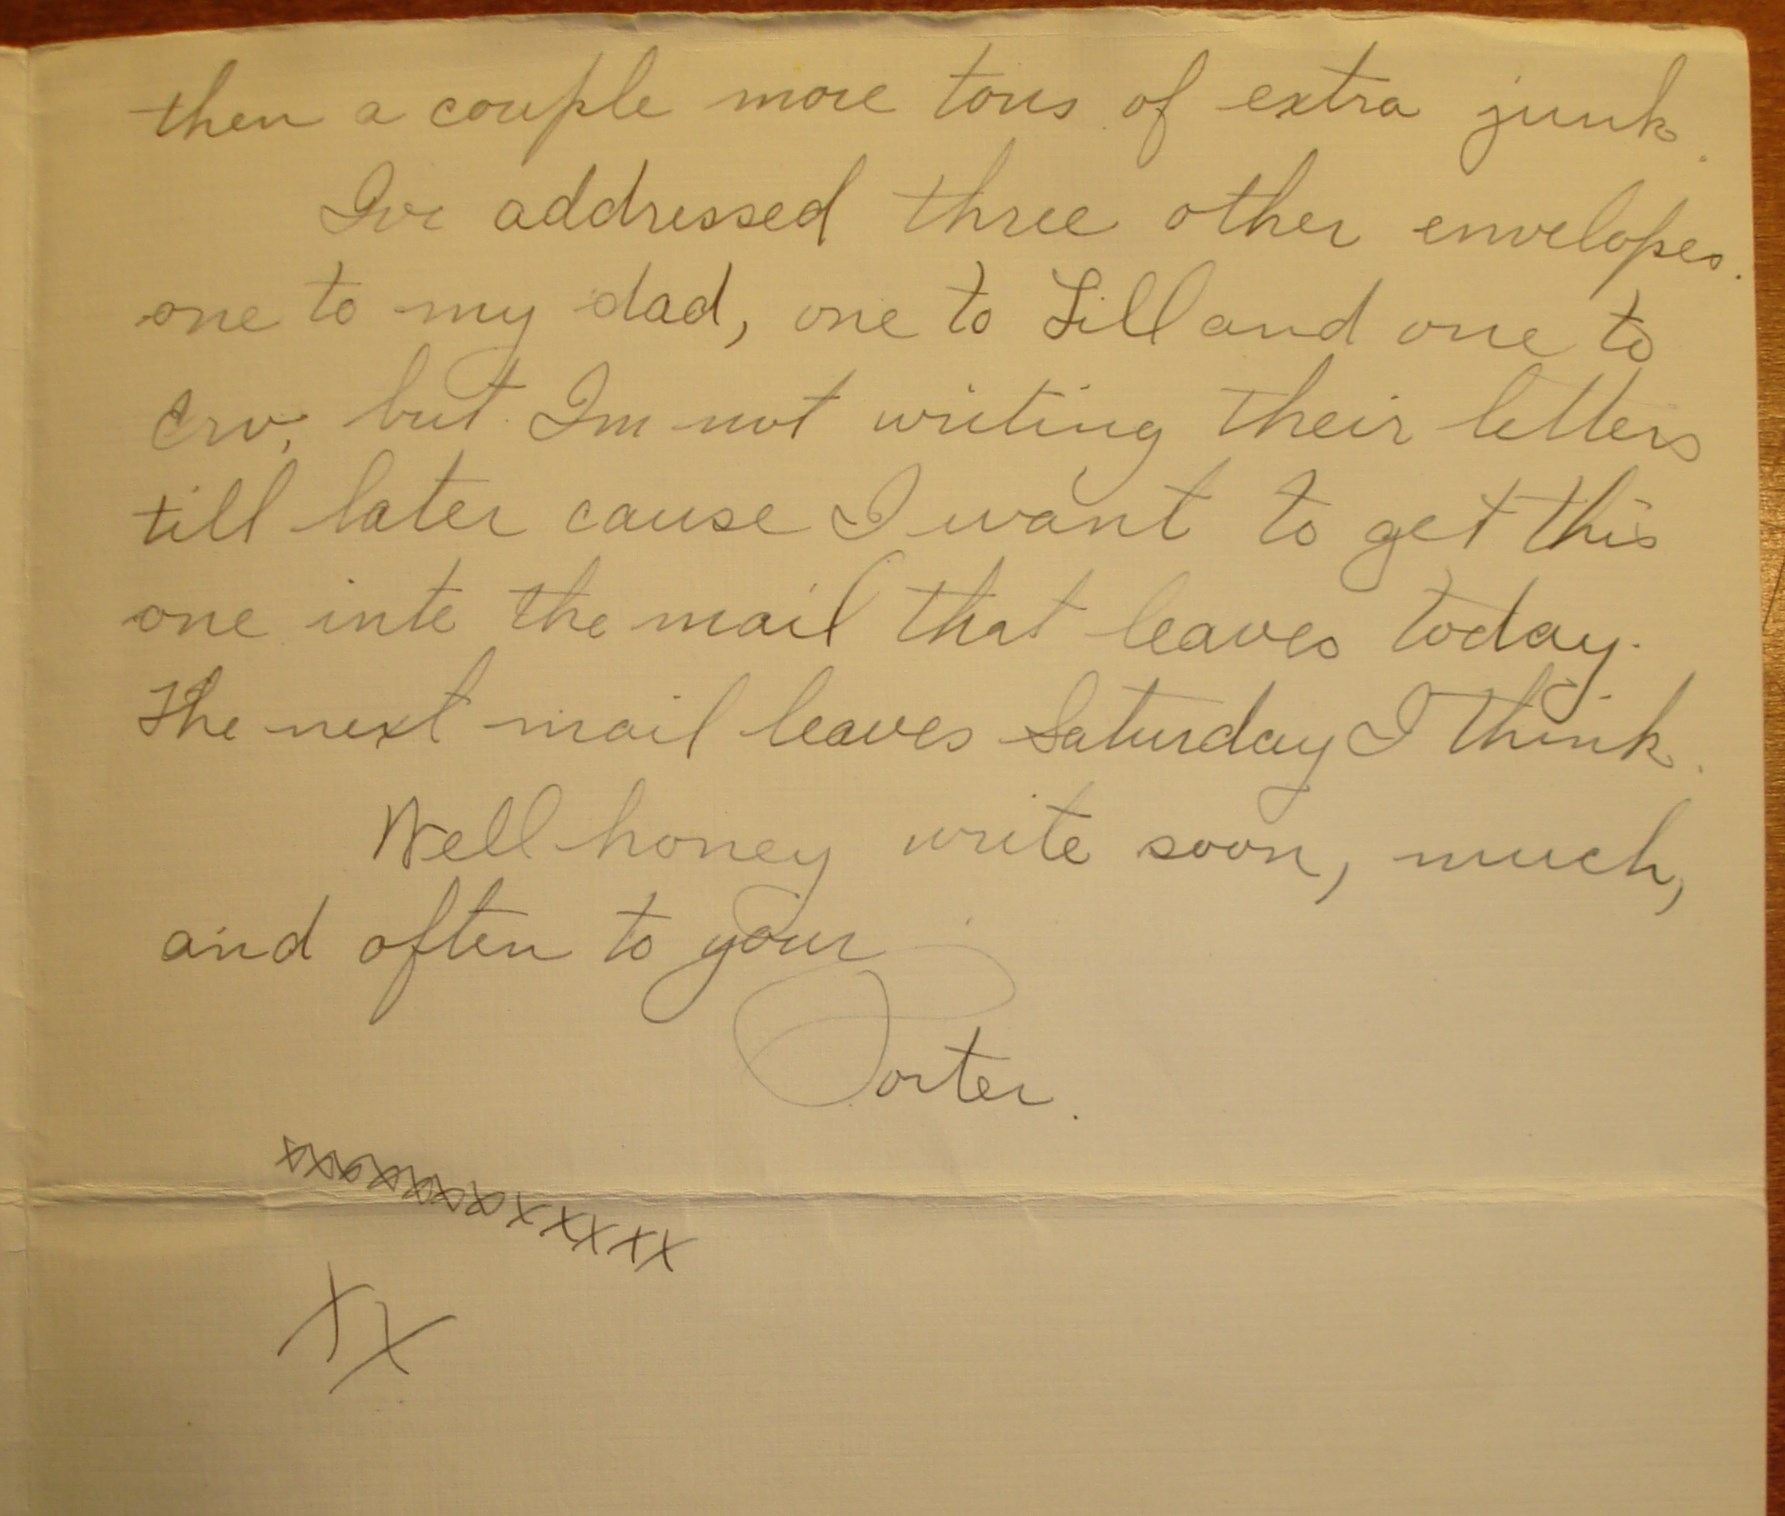 then a couple more tons of extra junk.
Ive addressed three other envelopes.
one to my dad, one to Lill and one to
Erv, but Im not writing their letters
till later cause I want to get this
one inte the mail that leaves today.
The next mail leaves Saturday I think.
Well honey write soon, much,
and often to your
Porter.
xxxxxxxxxxxxx
XX